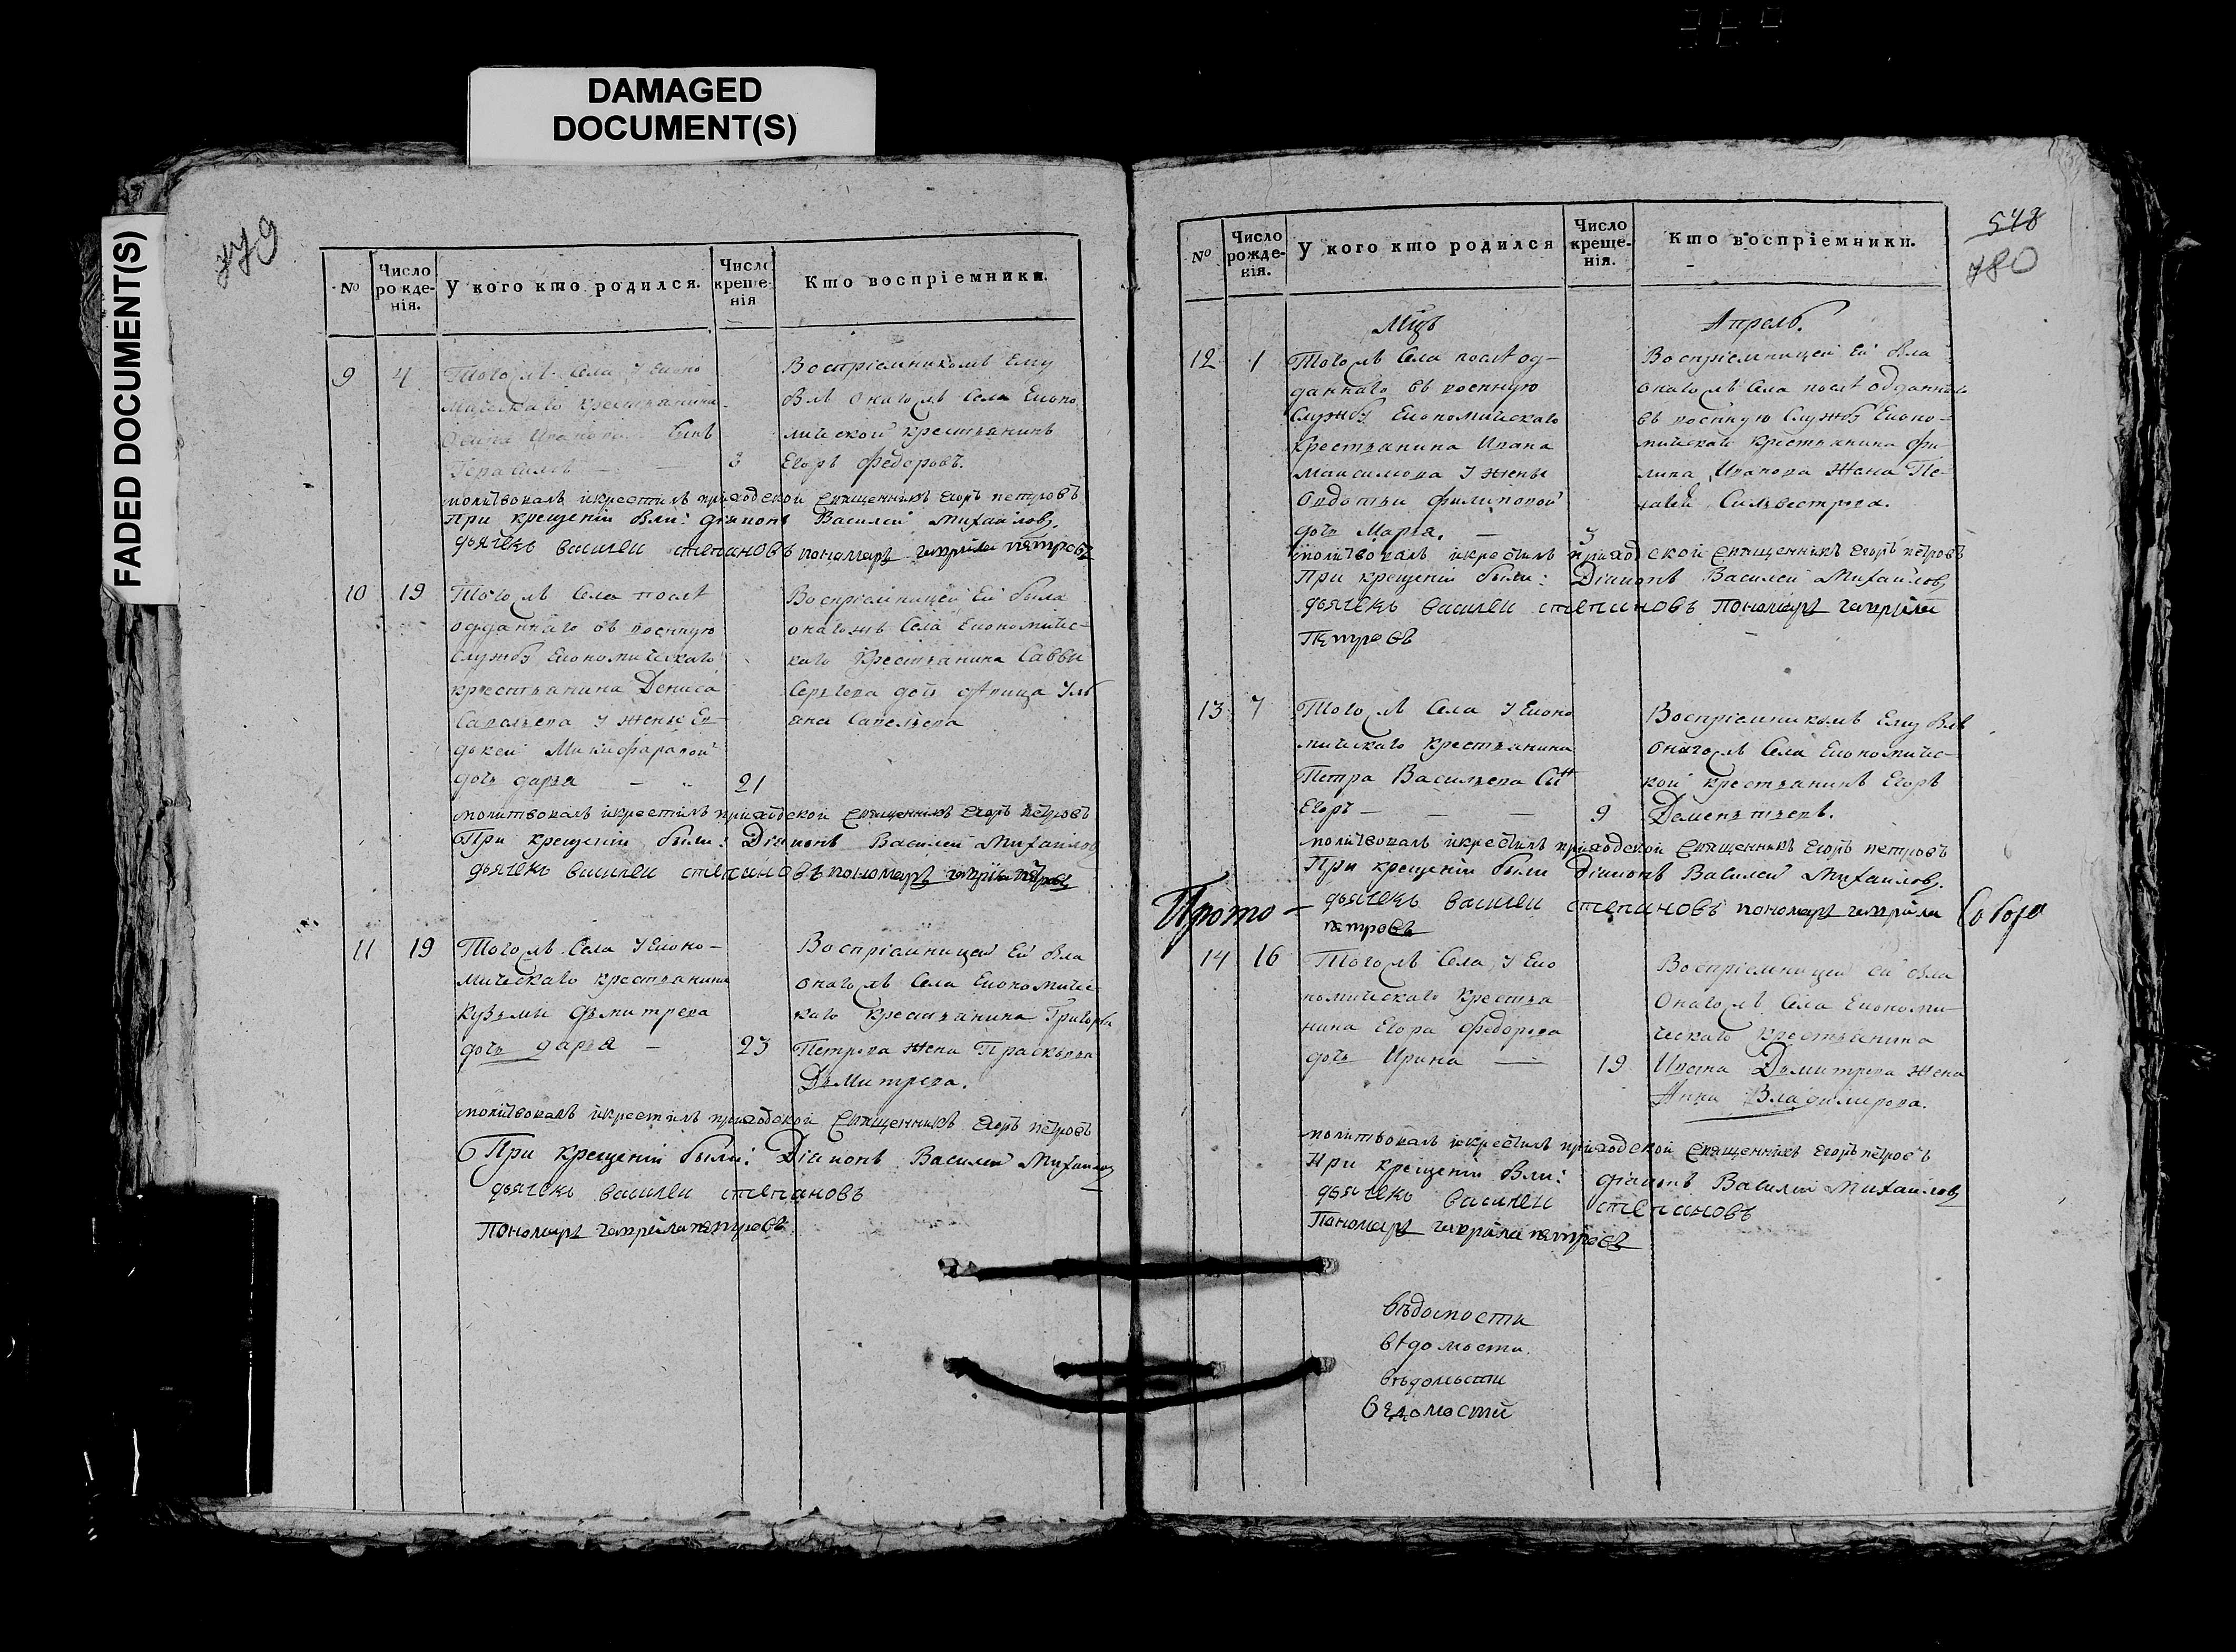 DAMAGED
DOCUMENT(S)
FADED DOCUMENT(S)
779
№
Число рожденія.
У кого кто родился.
Число крещенія
Кто воспріемники.
9 4
Тогожъ Села У Еконо
мическаго крестьянина
Ивановa Сынъ
Герасимъ — — 3
Воспріемникомъ Ему
былъ онагожъ Села Еконо
мической крестьянинъ
Егоръ Федоровъ.
молитвовалъ икрестилъ приходской священникъ егоръ петровъ
При крещеніи были: діаконъ Василей Михайловъ.
дьячекъ василеи степановъ пономарь гаврила петровъ
10 19
Тогожъ Села послѣ
отданнаго въ военную
службу Економическаго
крестьянина Дениса
Савельева У жены Ев-
докеи Микифаровой
дочь дарья — 21
Воспріемницей Ей была
онагожъ Села Економичес-
каго Крестьянина Саввы
Сергѣева дочь дѣвица Уль
яна Савельева
молитвовалъ икрестилъ приходской священникъ егоръ петровъ
При крещеніи были: Діаконъ Василей Михайловъ
дьячекъ василеи степановъ пономарь гаврила петровъ
11 19
Тогожъ Села У Еконо-
мическаго крестьянина
Кузьмы Дъмитрева
дочь дарья — 23
Воспріемницей Ей была
онагожъ Села Економичес-
каго крестьянина Григорья
Петрова жена Праскъвья
Дъмитрева.
молитвовалъ икрестилъ приходской священникъ егоръ петровъ
При крещеніи были: Діаконъ Василей Михайловъ
дьячекъ василеи степановъ
Пономарь гаврила петровъ
548
780
№
Число рожденія.
У кого кто родился
Число крещенія.
Кто воспріемники.
Мцъ Апрель.
12 1
Тогожъ Села послѣ от-
даннаго въ военную
Службу Економическаго
Крестьянина Ивана
Максимова У жены
Овдотьи филиповой
дочь Марья. — 3
Воспріемницей Ей была
онагожъ Села послѣ отданнаго
въ военную Службу Еконо-
мическаго крестьянина фи-
липа Иванова жена Пе-
лагея Сильвестрева.
молитвовалъ икрестилъ приходской священникъ егоръ петровъ
При крещеніи были: Діаконъ Василей Михайловъ
дьячекъ василеи степановъ пономарь гаврила
Петровъ
13 7
Тогожъ Села У Еконо
мическаго крестьянина
Петра Васильева Сынъ
Егоръ — — — 9
Воспріемникомъ Ему былъ
онагожъ Села Економичес-
кой крестьянинъ Егоръ
Деменьтьевъ.
молитвовалъ икрестилъ приходской священникъ егоръ петровъ
При крещеніи были Діаконъ Василей Михайловъ.
Прото — дьячекъ василеи степановъ пономарь гаврила
петровъ
14 16
Тогожъ Села У Еко
номическаго крестья
нина Егора Федорова
дочь Ирина — 19
Воспріемницей ей была
Онагожъ Села Економи-
ческаго крестьянина
Ивана Дъмитрева жена
Анна Владимирова.
молитвовалъ икрестилъ приходской священникъ егоръ петровъ
При крещеніи были: діаконъ Василей Михайловъ
дьячекъ василеи степановъ
Пономарь гаврила петровъ
вѣдомости
вѣдомости.
вѣдомости
Ведомостй